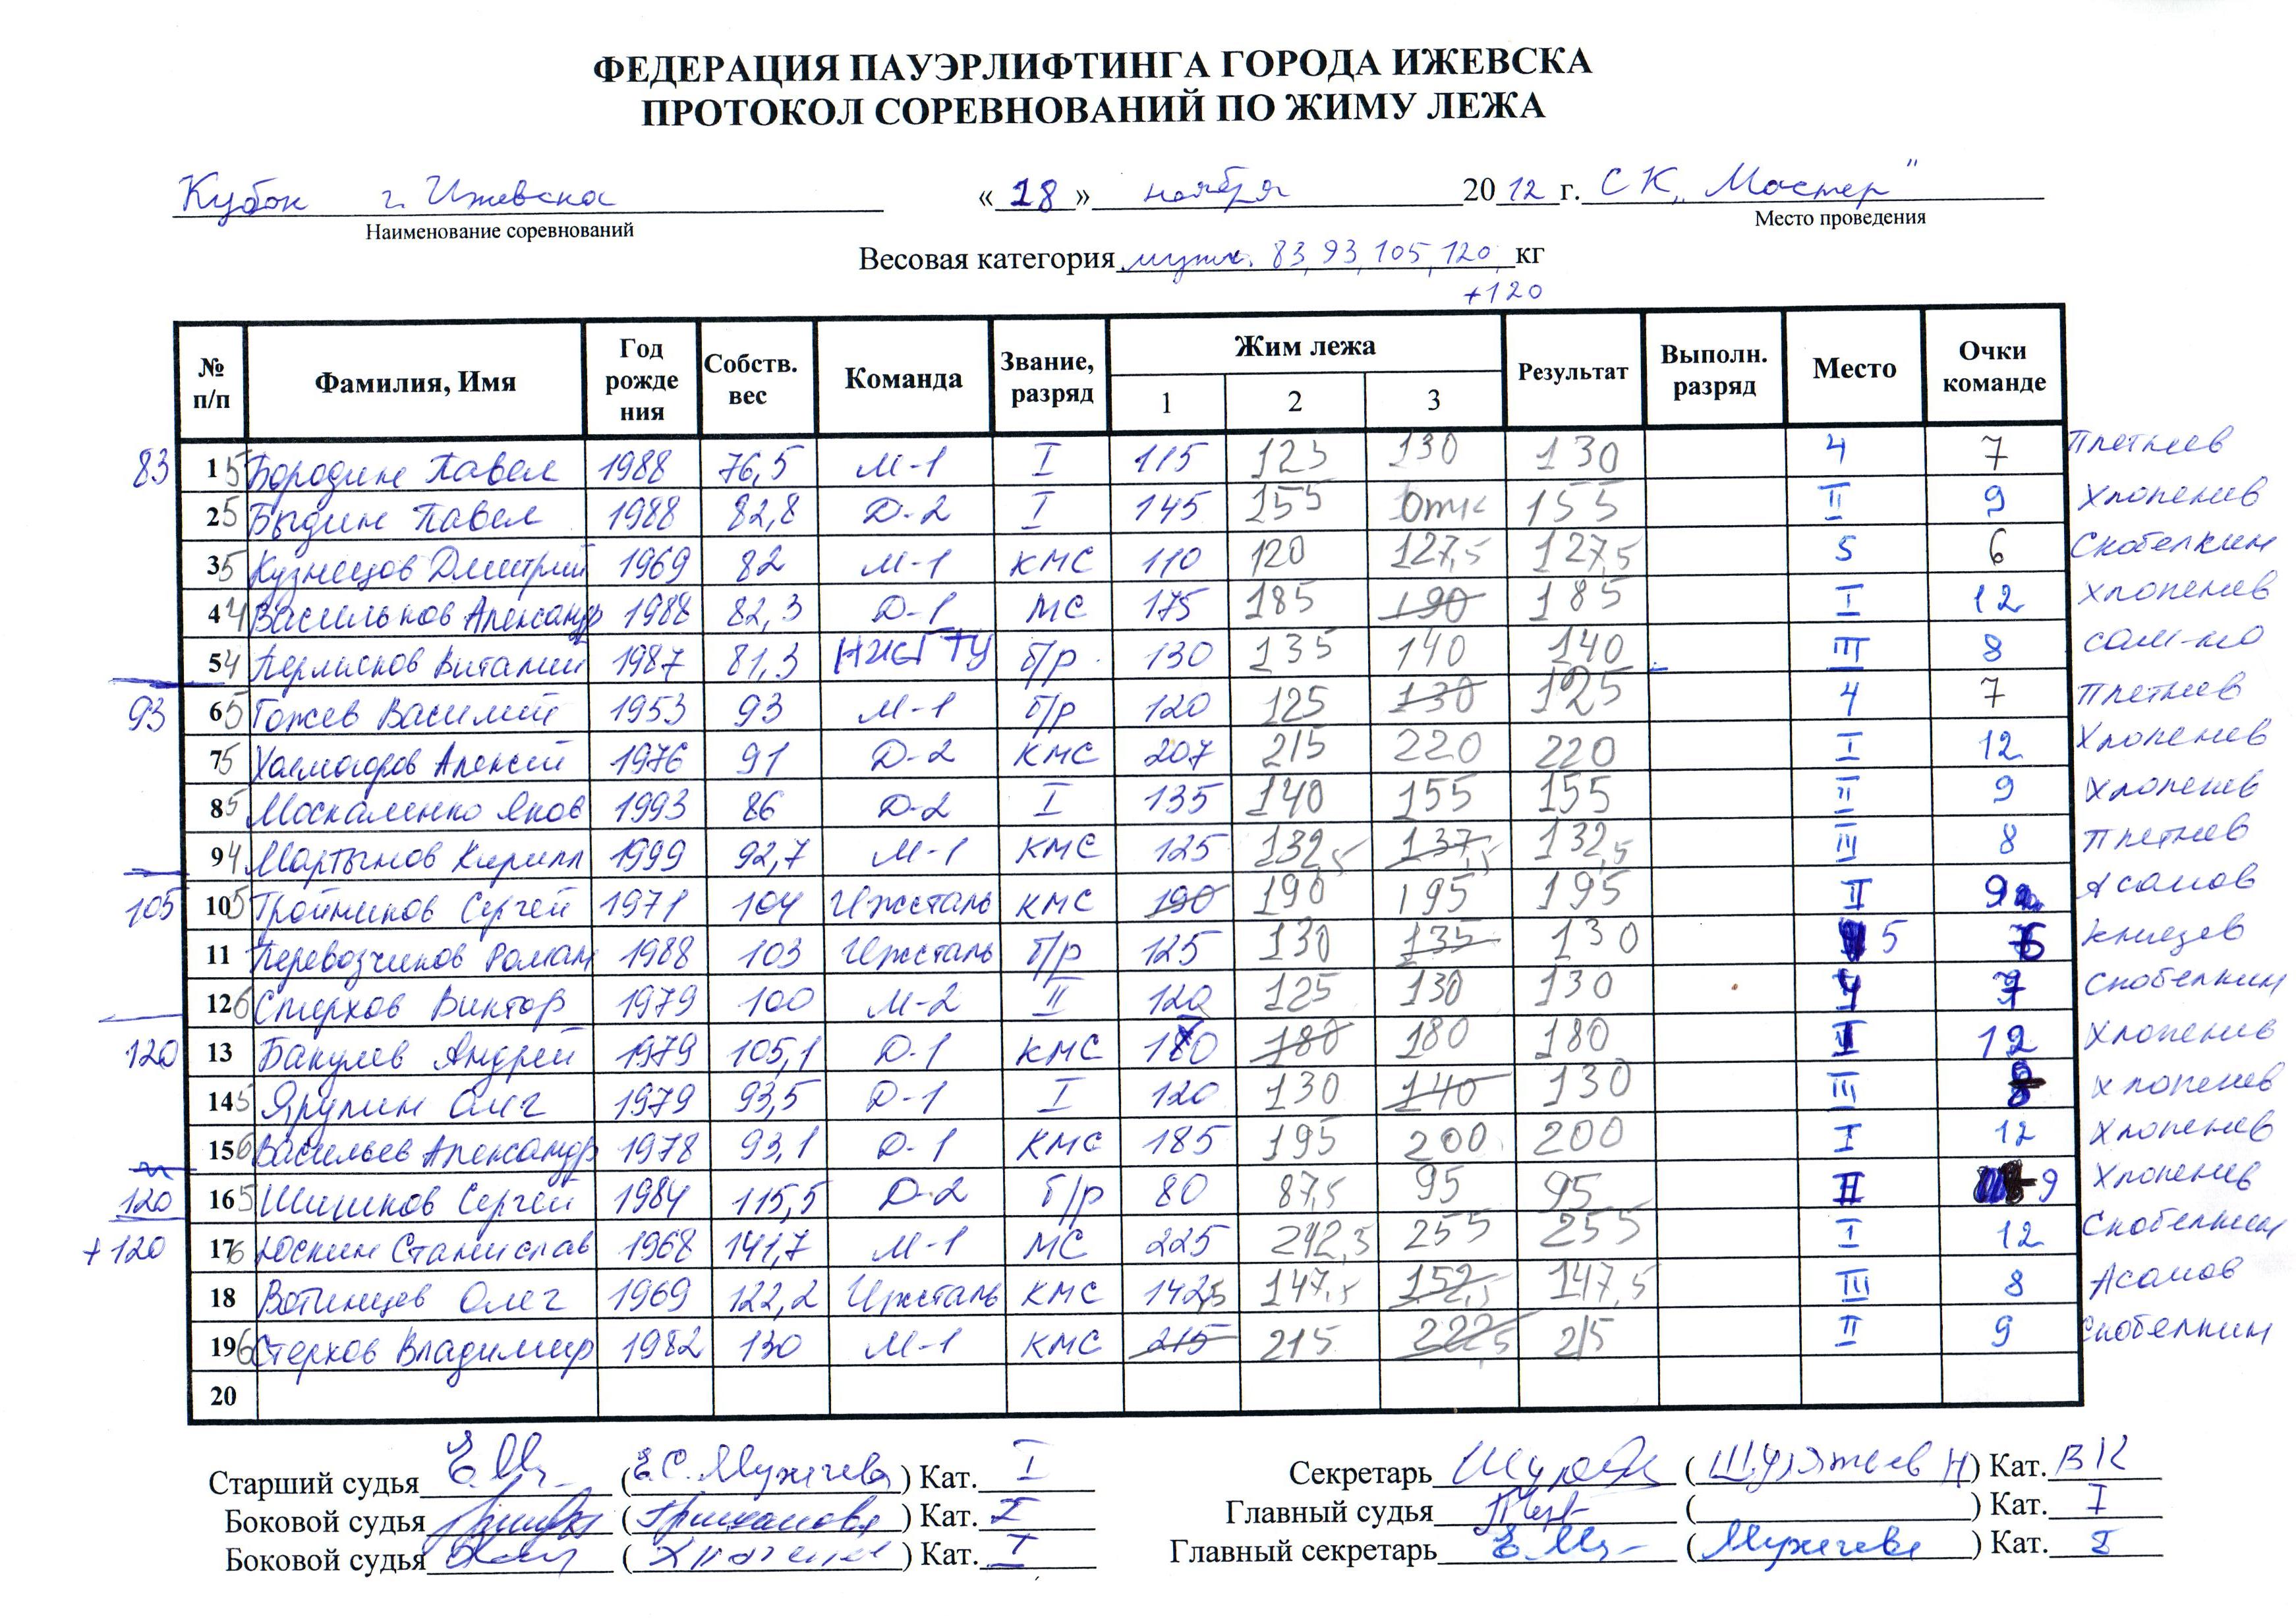 ФЕДЕРАЦИЯ ПАУЭРЛИФТИНГА ГОРОДА ИЖЕВСКА
ПРОТОКОЛ СОРЕВНОВАНИЙ ПО ЖИМУ ЛЕЖА
Кубок г. Ижевска «18» ноября 2012 г. СК „Мастер"
Наименование соревнований Место проведения
Весовая категория мужч. 83, 93, 105, 120, кг
+120
№ п/п Фамилия, Имя Год рожде ния Собств. вес Команда Звание, разряд Жим лежа Результат Выполн. разряд Место Очки команде
1 2 3
83 1 5 Бородин Павел 1988 76,5 М-1 I 115 125 130 130 4 7 Плетнев
2 5 Быдин Павел 1988 82,8 Д-2 I 145 155 отк 155 II 9 Хлопенев
3 5 Кузнецов Дмитрий 1969 82 М-1 КМС 110 120 127,5 127,5 5 6 Скобелкин
4 4 Васильков Александр 1988 82,3 Д-1 МС 175 185 190 185 I 12 Хлопенев
5 4 Пермяков Виталий 1987 81,3 ИжГТУ б/р 130 135 140 140 III 8 сам-но
93 6 5 Гожев Василий 1953 93 М-1 б/р 120 125 130 125 4 7 Плетнев
7 5 Холмогоров Алексей 1976 91 Д-2 КМС 207 215 220 220 I 12 Хлопенев
8 5 Москаленко Яков 1993 86 Д-2 I 135 140 155 155 II 9 Хлопенев
9 4 Мартынов Кирилл 1999 92,7 М-1 КМС 125 132,5 137,5 132,5 III 8 Плетнев
105 10 5 Тройников Сергей 1971 104 Ижсталь КМС 190 190 195 195 II 9 Асанов
11 Перевозчиков Роман 1988 103 Ижсталь б/р 125 130 135 130 5 6 Князев
12 6 Стерхов Виктор 1979 100 М-2 II 120 125 130 130 4 7 Скобелкин
120 13 Бакулев Андрей 1979 105,1 Д-1 КМС 170 180 180 180 I 12 Хлопенев
14 5 Ярулин Олег 1979 93,5 Д-1 I 120 130 140 130 III 8 Хлопенев
15 6 Васильев Александр 1978 93,1 Д-1 КМС 185 195 200 200 I 12 Хлопенев
120 16 5 Шишков Сергей 1984 115,5 Д-2 б/р 80 87,5 95 95 II 9 Хлопенев
+120 17 6 Юскин Станислав 1968 141,7 М-1 МС 225 242,5 255 255 I 12 Скобелкин
18 Вотинцев Олег 1969 122,2 Ижсталь КМС 142,5 147,5 152,5 147,5 III 8 Асанов
19 6 Стерхов Владимир 1982 130 М-1 КМС 215 215 222,5 215 II 9 Скобелкин
20
Старший судья (Е.С. Мужичева) Кат. I Секретарь ( Н) Кат. ВК
Боковой судья (Гришанова) Кат. I Главный судья ( ) Кат. I
Боковой судья ( ) Кат. I Главный секретарь (Мужичева) Кат. I